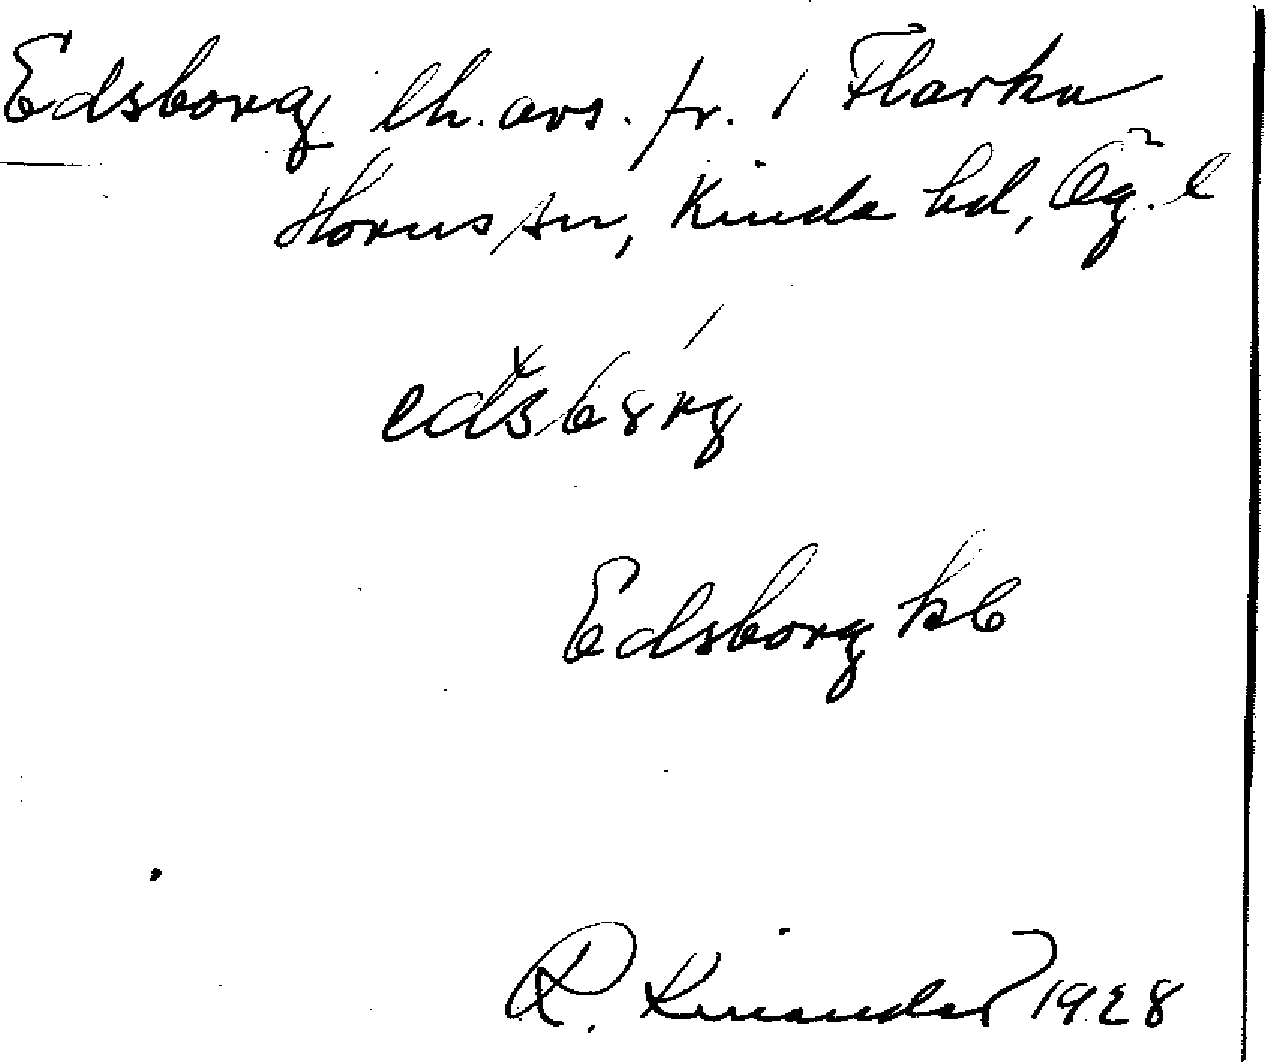 Edsborg lh. avs. fr. 1 Flarka
Horns sn, Kinda hd, Ög. l
edsbȣrg
Edsborg kb
R. Kinander 1928